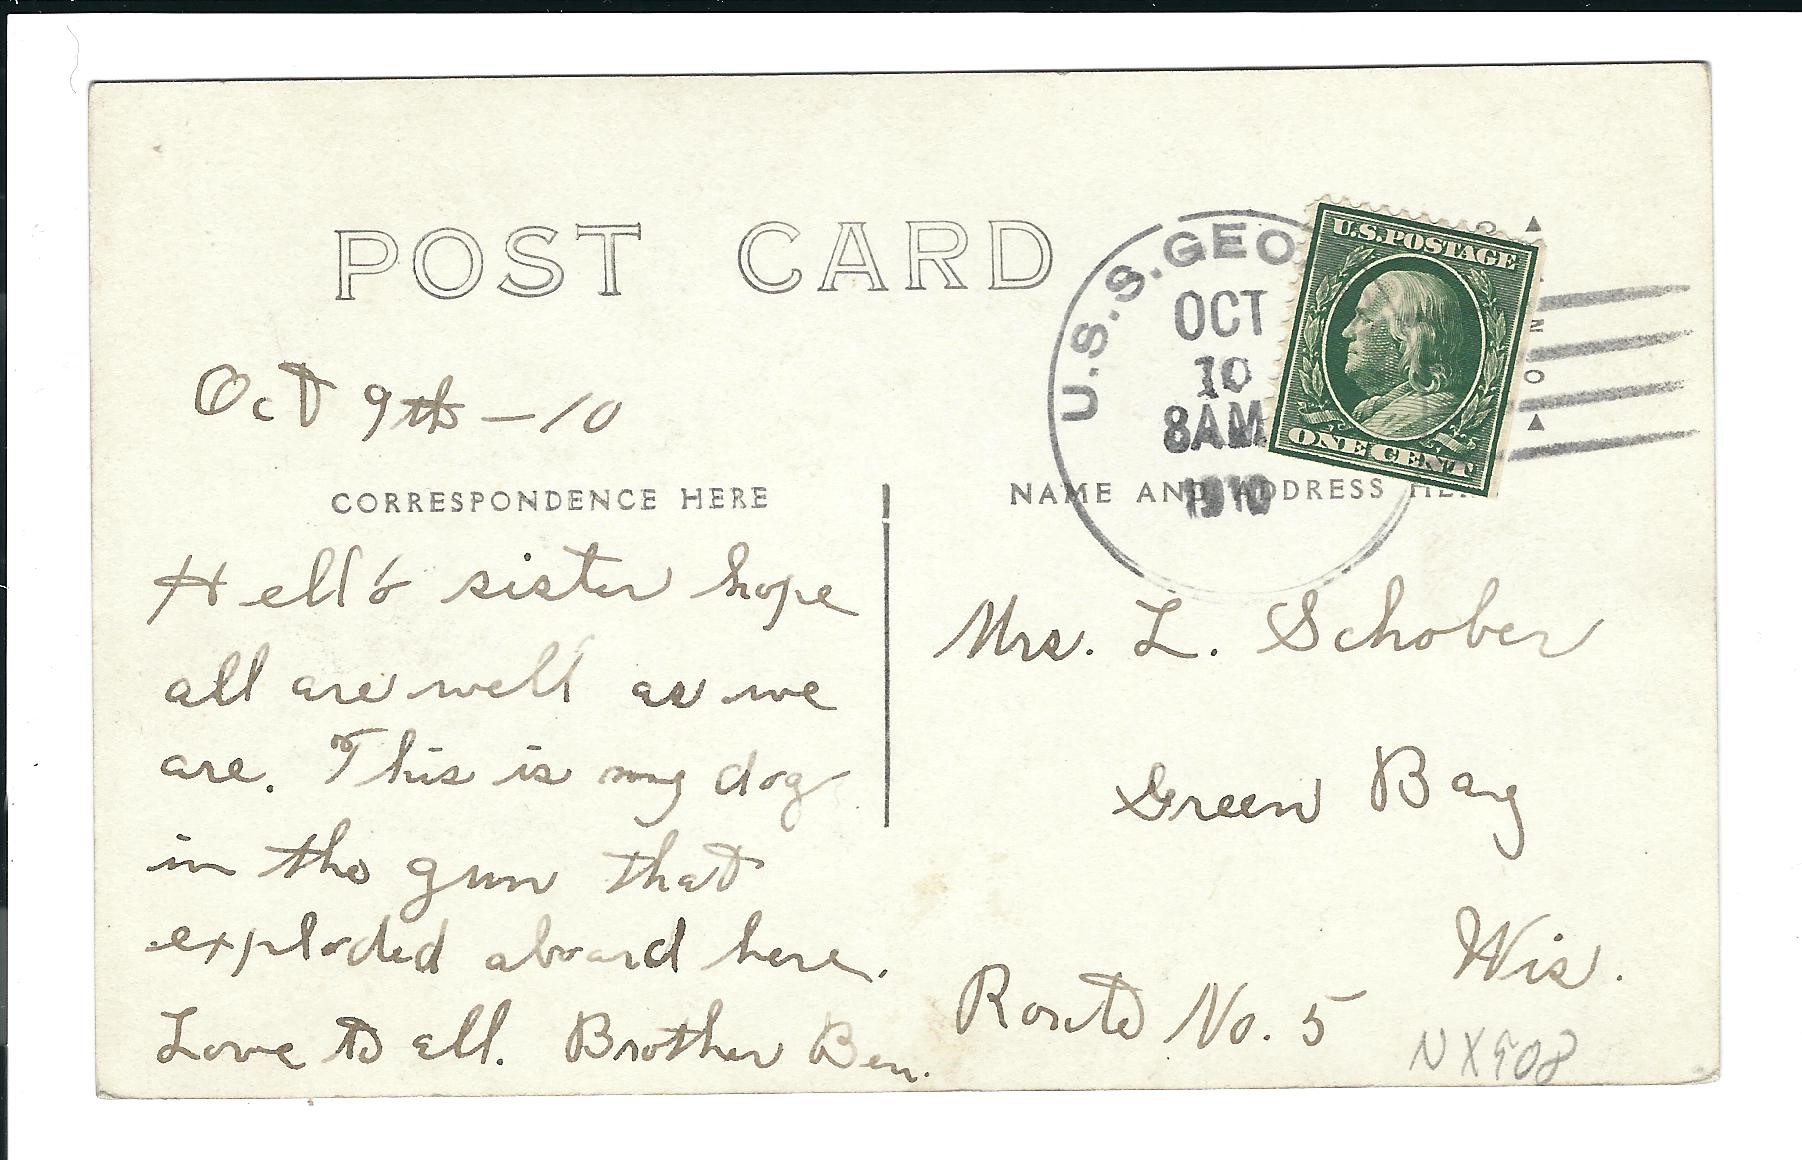 POST CARD
U.S.S. GEO
OCT
10
8AM
1910
U.S. POSTAGE
ONE CENT
NO
Oct 9th – 10
CORRESPONDENCE HERE
NAME AND ADDRESS HE
Hello sister hope
all are well as we
are. This is my dog
in the gun that
exploded aboard here.
Love to all. Brother Ben.
Mrs. L. Schober
Green Bay
Wis.
Route No. 5